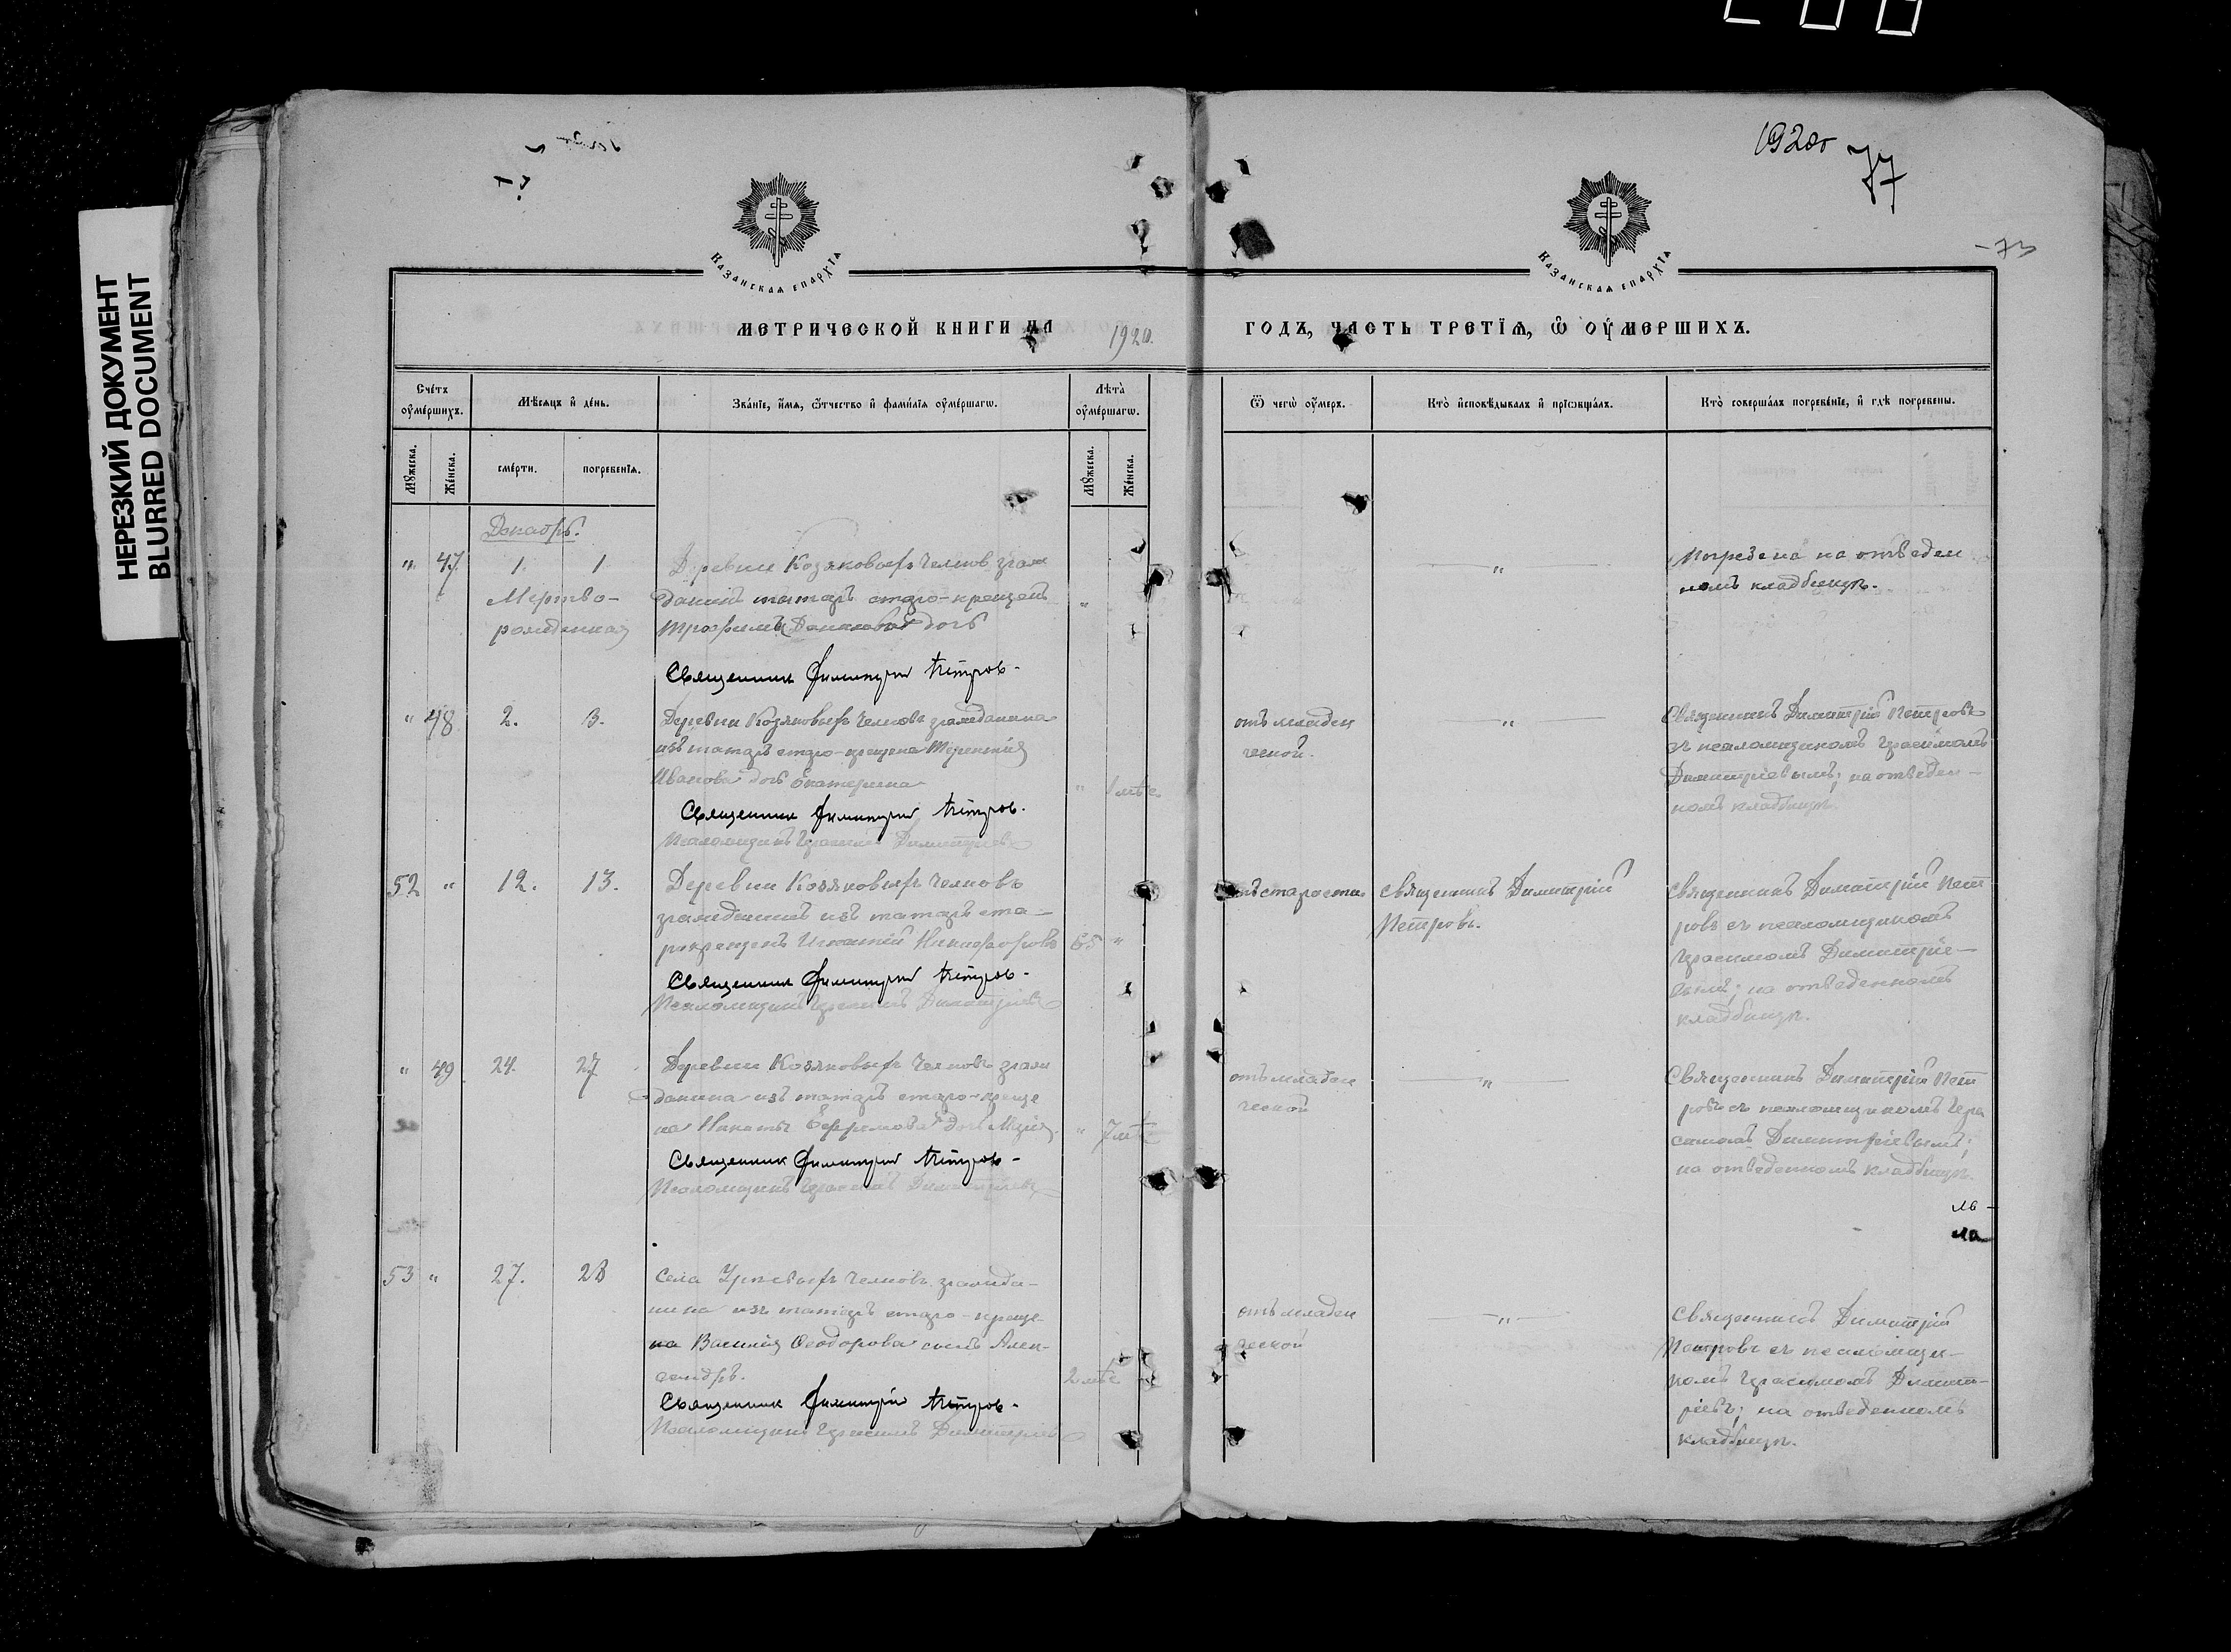 НЕРЕЗКИЙ ДОКУМЕНТ
BLURRED DOCUMENT
1920г
77
-73
Казанская епархїѧ
Казанская епархїѧ
МЕТРИЧЕСКОЙ КНИГИ НА 1920. ГОДЪ, ЧАСТЬ ТРЕТЇѦ, Ѿ ОУМЕРШИХЪ.
Счетъ оумершихъ.
Мѣсяцъ и день.
Званїе, имя, отчество и фамилїя оумершагѡ.
Лѣта оумершагѡ.
Ѿ чегѡ оумеръ.
Кто исповѣдывалъ и прїобщалъ.
Кто совершалъ погребенїе, и гдѣ погребены.
Мꙋжеска.
Женска.
смерти.
погребенїя.
Мꙋжеска.
Женска.
Декабрь.
" 47 1. 1
Мертво-
рожденная
Деревни Козяковыхъ Челнов граж
данинъ татаръ старо-крещенъ
Трофимъ дочь
"
Священник Димитрий Петров.
— " —
Погребена на отведен
номъ кладбищѣ.
" 48 2. 3.
Деревни Козяковыхъ Челновъ гражданина
изъ татаръ старо-крещена Терентія
Иванова дочь Екатерина
" 1 мѣс.
Священник Димитрий Петров.
Псаломщикъ Герасимъ Димитріевъ
отъ младен
ческой.
— " —
Священникъ Димитрій Петровъ
съ псаломщикомъ Герасимомъ
Димитріевымъ; на отведен-
номъ кладбищѣ.
52 " 12. 13.
Деревни Козяковыхъ Челновъ
гражданинъ изъ татаръ ста-
рокрещенъ Игнатій Никифоровъ
65 "
Священник Димитрий Петров.
Псаломщикъ Герасимъ Димитріевъ
отъ старости.
Священникъ Димитрій
Петровъ.
Священникъ Димитрій Пет
ровъ съ псаломщикомъ
Герасимомъ Димитріе-
вымъ; на отведенномъ
кладбищѣ.
" 49 24. 27
Деревни Козяковыхъ Челновъ граж
данина изъ татаръ старо-креще
на Никиты Ефремова дочь Марія
" 7 мѣс
Священник Димитрий Петров.
Псаломщикъ Герасимъ Димитріевъ
отъ младен
ческой
— " —
Священникъ Димитрій Пет
ровъ съ псаломщикомъ Гера
симомъ Димитріевымъ;
на отведенномъ кладбищѣ.
53 " 27. 28
Села Урѣевыхъ Челновъ гражда-
нина изъ татаръ старо-креще-
на Василія Ѳеодорова сынъ Алек-
сандръ.
2 мѣс
Священник Димитрий Петров.
Псаломщикъ Герасимъ Димитріевъ
отъ младен
ческой
— " —
Священникъ Димитрій
Петровъ съ псаломщи-
комъ Герасимомъ Димит-
ріевъ; на отведенномъ
кладбищѣ.